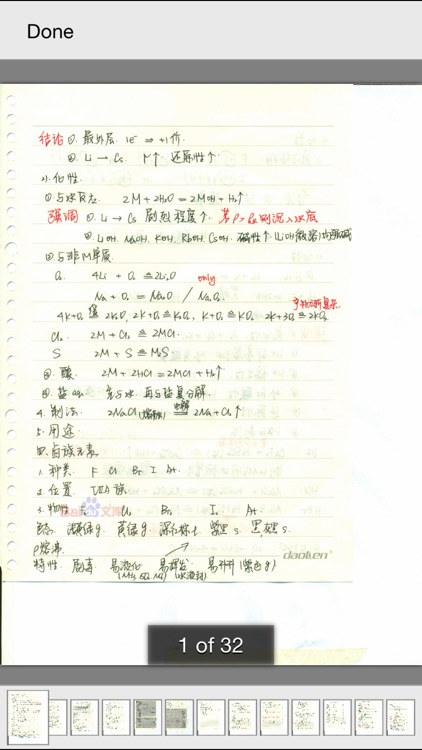 Done
结论 ①. 最外层 1e⁻ ⇒ +1价.
②. Li → Cs. r↑ 还原性↑.
2). 化性.
①. 与水反应. 2M + 2H₂O = 2MOH + H₂↑
强调 ①. Li → Cs 剧烈程度↑. 若ρ > ρ水则沉入水底
②. LiOH. NaOH. KOH. RbOH. CsOH. 碱性↑ LiOH(微溶)
②. 与非M单质.
O₂ 4Li + O₂ ≜ 2Li₂O only
Na + O₂ = Na₂O / Na₂O₂.
4K + O₂ ≜ 2K₂O, 2K + O₂ ≜ K₂O₂, K + O₂ ≜ KO₂
Cl₂. 2M + Cl₂ ≜ 2MCl.
S 2M + S ≜ M₂S
③. 酸. 2M + 2HCl = 2MCl + H₂↑
④. 盐 aq. 先与水. 再与盐复分解.
4. 制法. 2NaCl(熔融) 电解 2Na + Cl₂↑
5. 用途.
四. 卤族元素.
1. 种类. F Cl Br I At.
2. 位置. ⅦA 族
3. 物性 F₂ Cl₂ Br₂ I₂ At
Bai 文库
颜色. 浅黄绿g. 黄绿g. 深红棕l. 紫黑s. 黑s.
ρ熔沸
特性. 剧毒 易液化 易挥发 易升华(紫色g)
(水液封)
daolien®
1 of 32